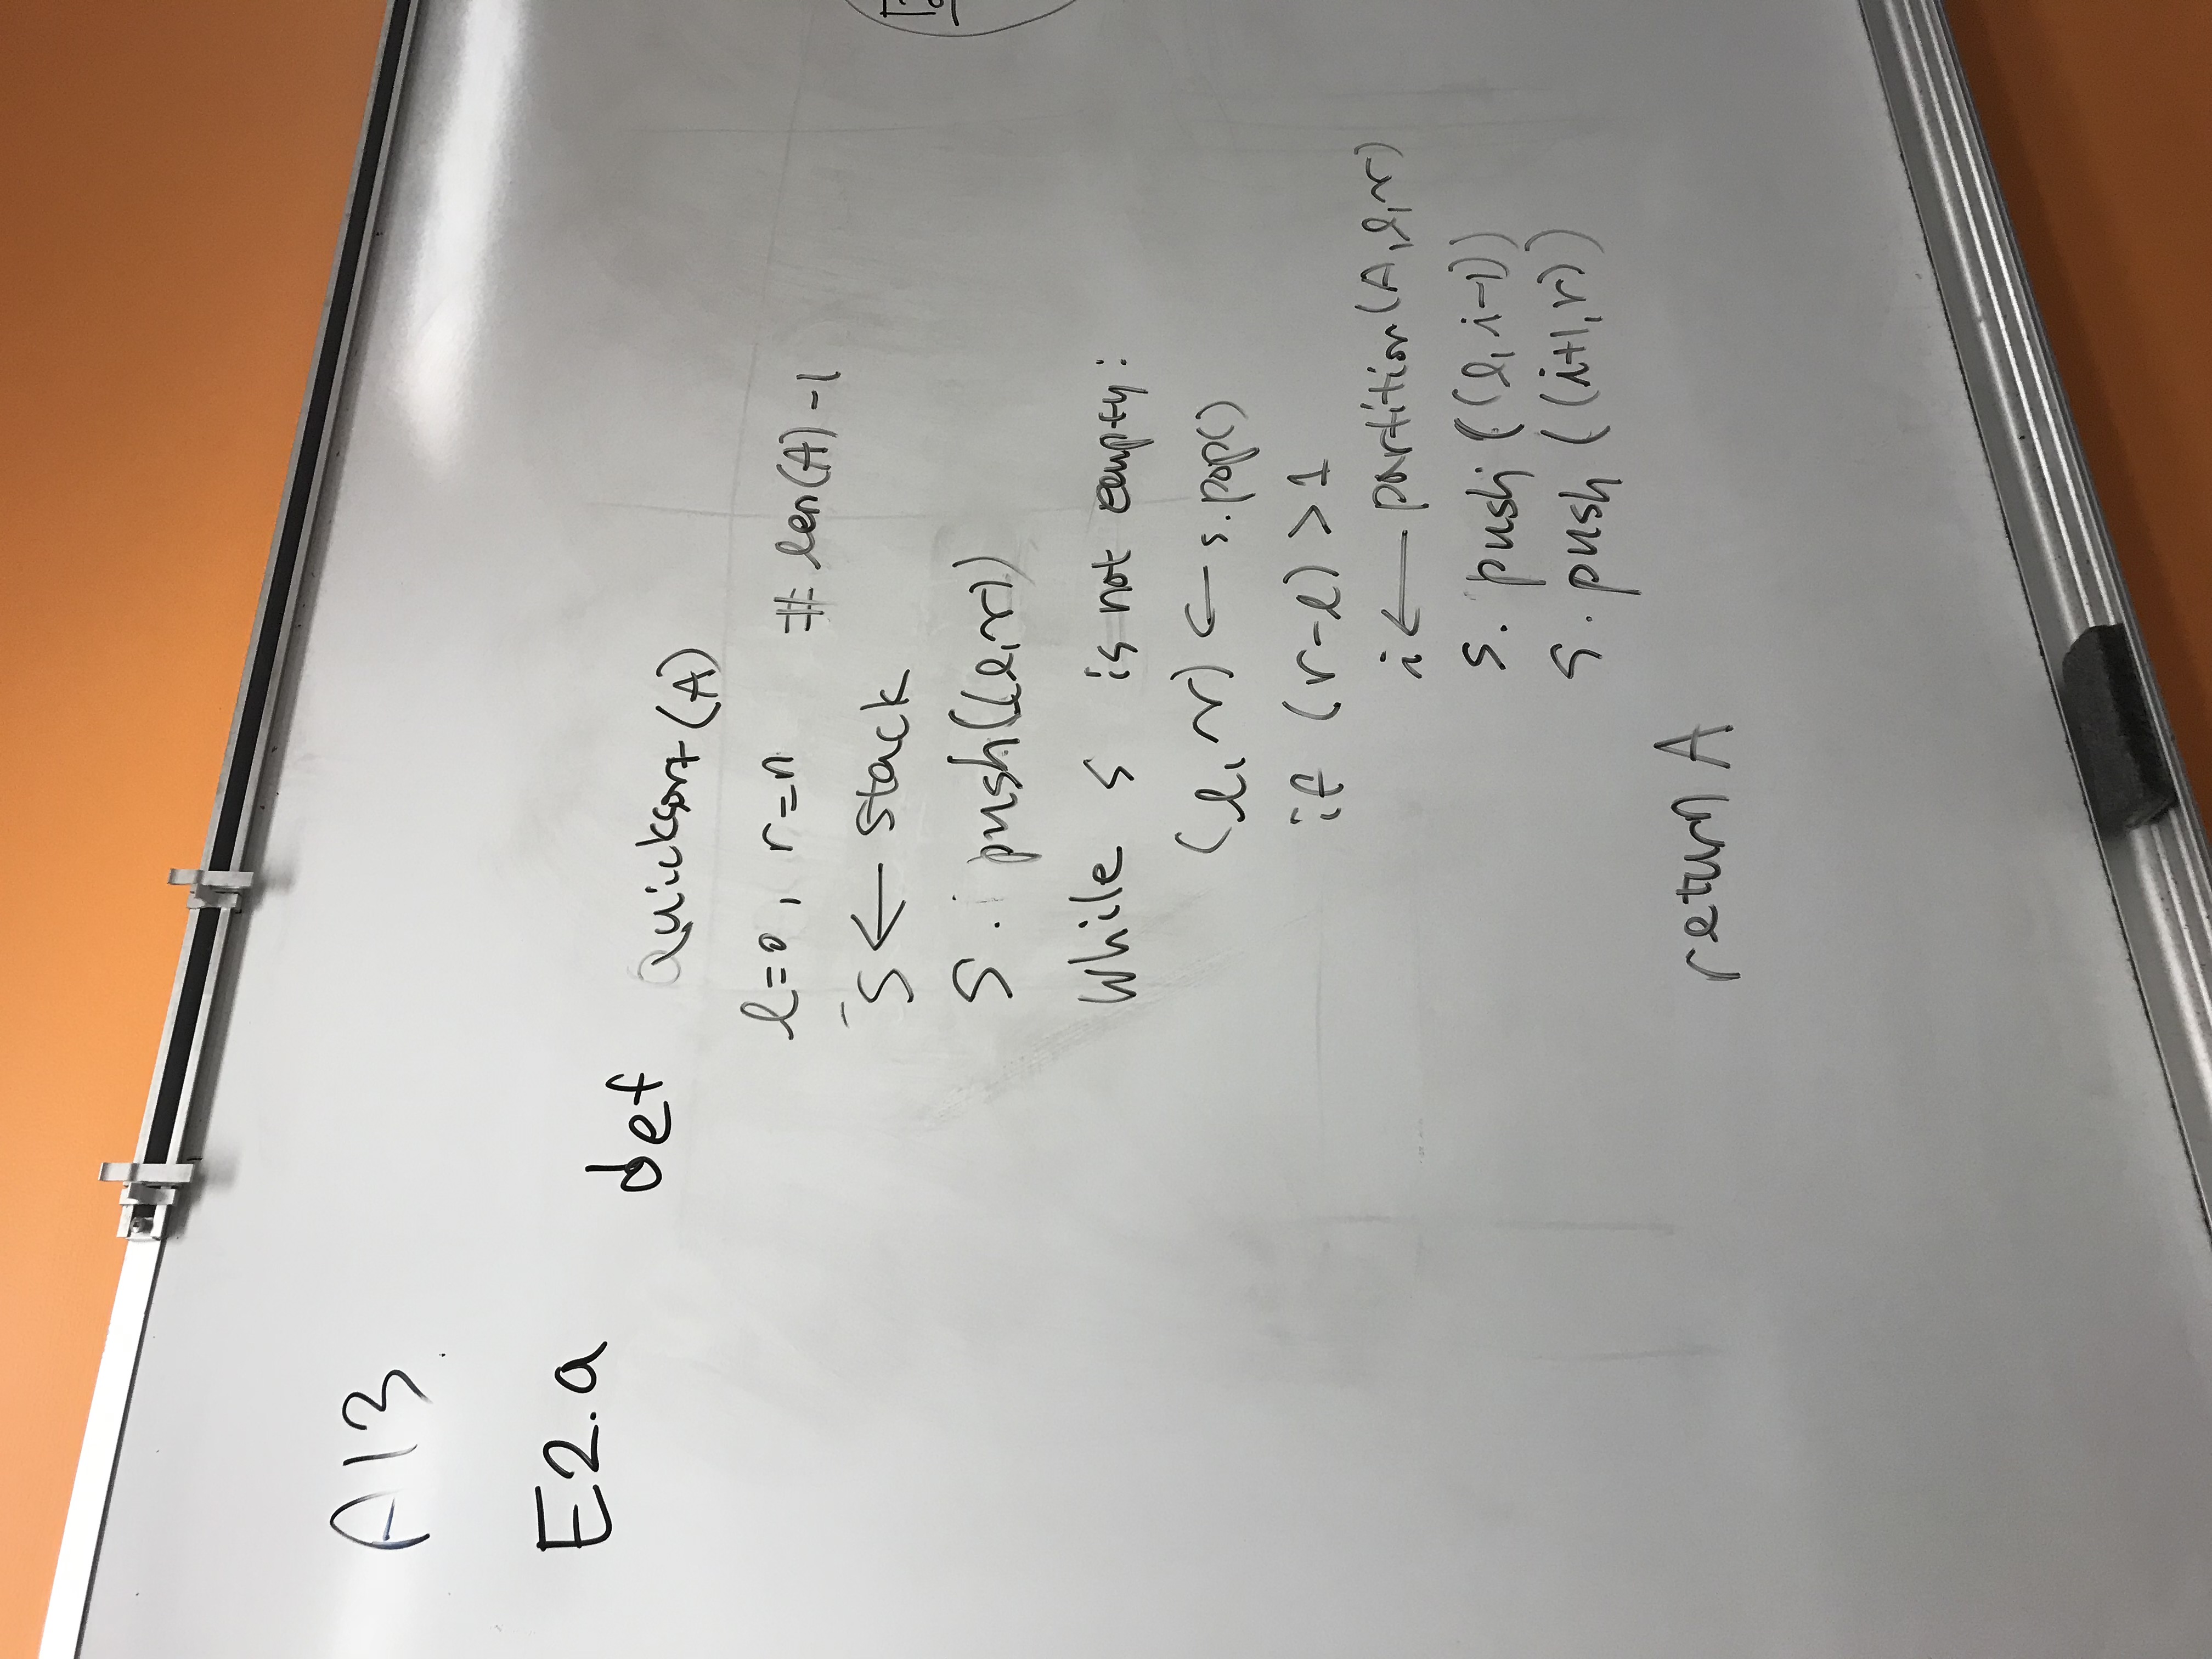 A13.
E2.a
def Quicksort(A)
l=0, r=n # len(A)-1
S ← stack
S. push((l,r))
while s is not empty:
(l, r) ← s.pop()
if (r-l) > 1
i ← partition(A,l,r)
s. push ((l, i-1))
s. push ((i+1, r))
return A